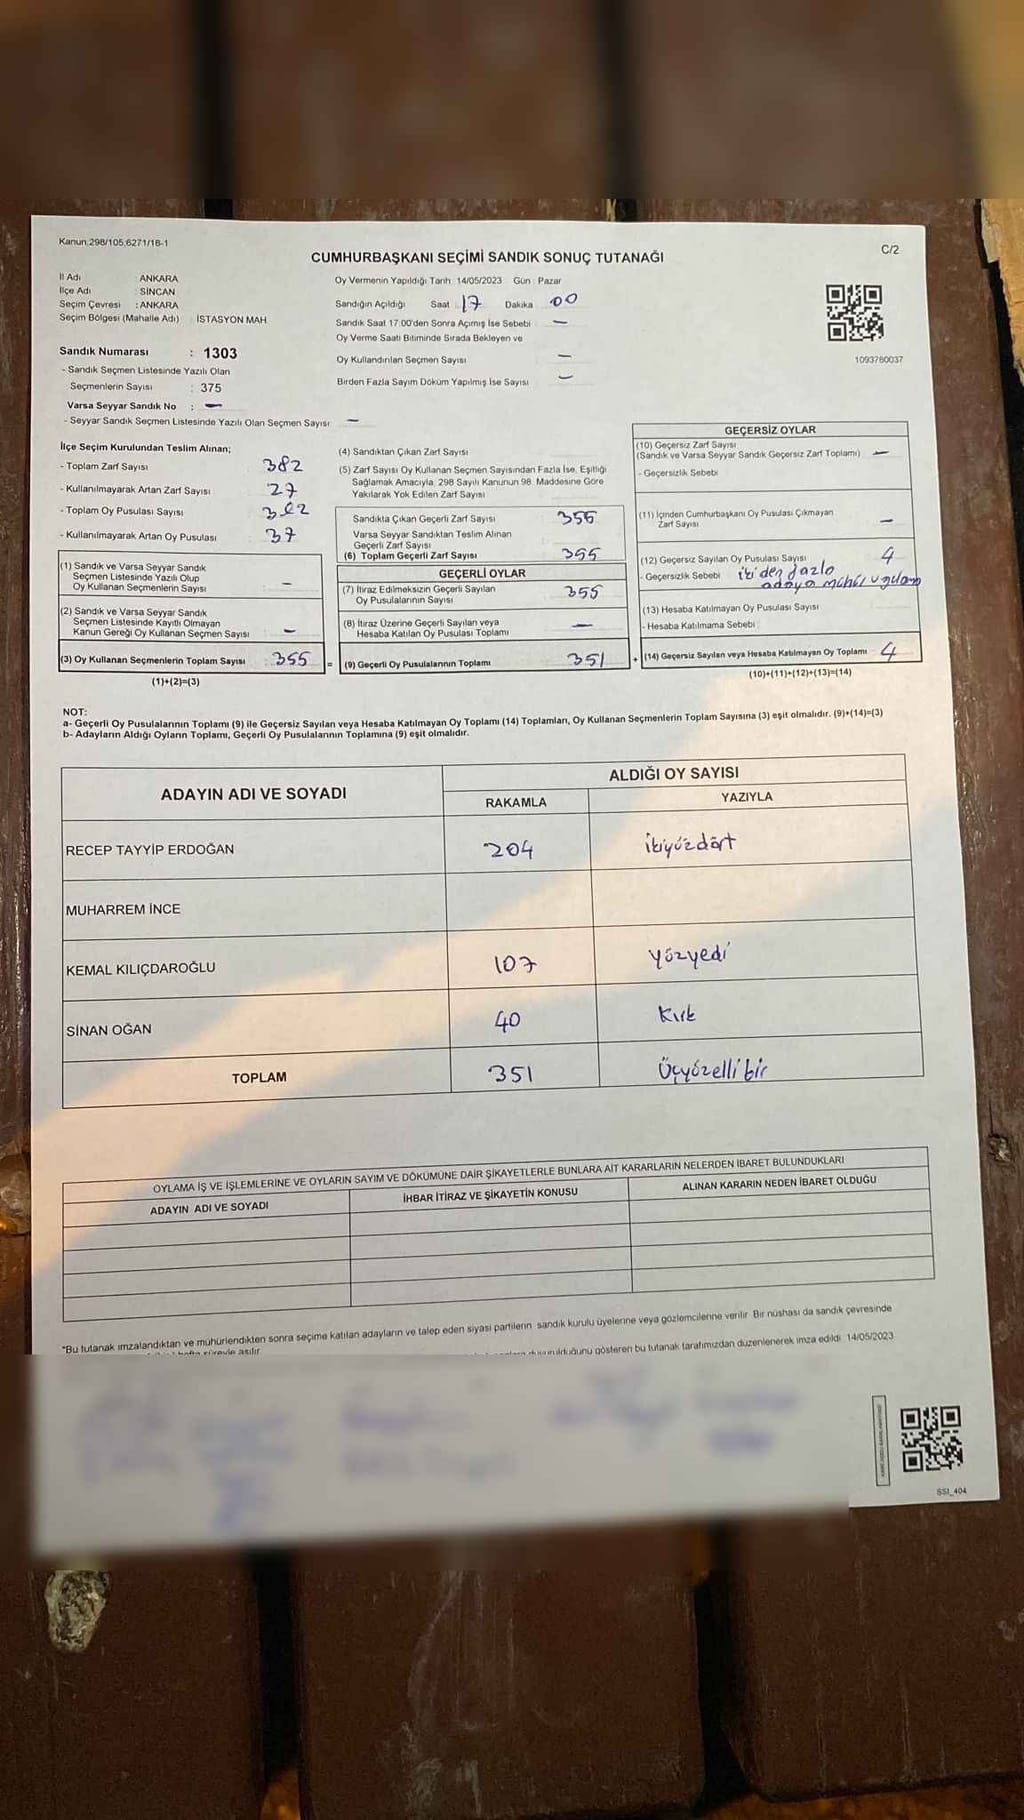 Kanun,298/105,6271/18-1
C/2
CUMHURBAŞKANI SEÇİMİ SANDIK SONUÇ TUTANAĞI
İl Adı : ANKARA
İlçe Adı : SİNCAN
Seçim Çevresi : ANKARA
Seçim Bölgesi (Mahalle Adı) İSTASYON MAH.
Sandık Numarası : 1303
- Sandık Seçmen Listesinde Yazılı Olan
Seçmenlerin Sayısı : 375
Varsa Seyyar Sandık No : –
- Seyyar Sandık Seçmen Listesinde Yazılı Olan Seçmen Sayısı: –
Oy Vermenin Yapıldığı Tarih 14/05/2023 Gün Pazar
Sandığın Açıldığı Saat 17 Dakika 00
Sandık Saat 17:00'den Sonra Açımış İse Sebebi –
Oy Verme Saati Bitiminde Sırada Bekleyen ve
Oy Kullandırılan Seçmen Sayısı –
Birden Fazla Sayım Döküm Yapılmış İse Sayısı –
1093760037
İlçe Seçim Kurulundan Teslim Alınan;
- Toplam Zarf Sayısı 382
- Kullanılmayarak Artan Zarf Sayısı 27
- Toplam Oy Pusulası Sayısı
- Kullanılmayarak Artan Oy Pusulası 37
(1) Sandık ve Varsa Seyyar Sandık
Seçmen Listesinde Yazılı Olup
Oy Kullanan Seçmenlerin Sayısı –
(2) Sandık ve Varsa Seyyar Sandık
Seçmen Listesinde Kayıtlı Olmayan
Kanun Gereği Oy Kullanan Seçmen Sayısı –
(3) Oy Kullanan Seçmenlerin Toplam Sayısı : 355 =
(1)+(2)=(3)
(4) Sandıktan Çıkan Zarf Sayısı
(5) Zarf Sayısı Oy Kullanan Seçmen Sayısından Fazla İse, Eşitliği
Sağlamak Amacıyla, 298 Sayılı Kanunun 98. Maddesine Göre
Yakılarak Yok Edilen Zarf Sayısı
Sandıkta Çıkan Geçerli Zarf Sayısı 355
Varsa Seyyar Sandıktan Teslim Alınan
Geçerli Zarf Sayısı
(6) Toplam Geçerli Zarf Sayısı 355
GEÇERLİ OYLAR
(7) İtiraz Edilmeksizin Geçerli Sayılan
Oy Pusulalarının Sayısı 355
(8) İtiraz Üzerine Geçerli Sayılan veya
Hesaba Katılan Oy Pusulası Toplamı –
(9) Geçerli Oy Pusulalarının Toplamı 351 +
GEÇERSİZ OYLAR
(10) Geçersiz Zarf Sayısı
(Sandık ve Varsa Seyyar Sandık Geçersiz Zarf Toplamı) –
- Geçersizlik Sebebi
(11) İçinden Cumhurbaşkanı Oy Pusulası Çıkmayan
Zarf Sayısı –
(12) Geçersiz Sayılan Oy Pusulası Sayısı 4
- Geçersizlik Sebebi ikiden fazla
adaya mühür
(13) Hesaba Katılmayan Oy Pusulası Sayısı
- Hesaba Katılmama Sebebi
(14) Geçersiz Sayılan veya Hesaba Katılmayan Oy Toplamı 4
(10)+(11)+(12)+(13)=(14)
NOT:
a- Geçerli Oy Pusulalarının Toplamı (9) ile Geçersiz Sayılan veya Hesaba Katılmayan Oy Toplamı (14) Toplamları, Oy Kullanan Seçmenlerin Toplam Sayısına (3) eşit olmalıdır. (9)+(14)=(3)
b- Adayların Aldığı Oyların Toplamı, Geçerli Oy Pusulalarının Toplamına (9) eşit olmalıdır.
ADAYIN ADI VE SOYADI
ALDIĞI OY SAYISI
RAKAMLA YAZIYLA
RECEP TAYYİP ERDOĞAN 204 ikiyüzdört
MUHARREM İNCE
KEMAL KILIÇDAROĞLU 107 yüzyedi
SİNAN OĞAN 40 Kırk
TOPLAM 351 Üçyüzellibir
OYLAMA İŞ VE İŞLEMLERİNE VE OYLARIN SAYIM VE DÖKÜMÜNE DAİR ŞİKAYETLERLE BUNLARA AİT KARARLARIN NELERDEN İBARET BULUNDUKLARI
ADAYIN ADI VE SOYADI İHBAR İTİRAZ VE ŞİKAYETİN KONUSU ALINAN KARARIN NEDEN İBARET OLDUĞU
*Bu tutanak imzalandıktan ve mühürlendikten sonra seçime katılan adayların ve talep eden siyasi partilerin sandık kurulu üyelerine veya gözlemcilerine verilir. Bir nüshası da sandık çevresinde
hafta süreyle asılır. duyurulduğunu gösteren bu tutanak tarafımızdan düzenlenerek imza edildi. 14/05/2023
SSI_404